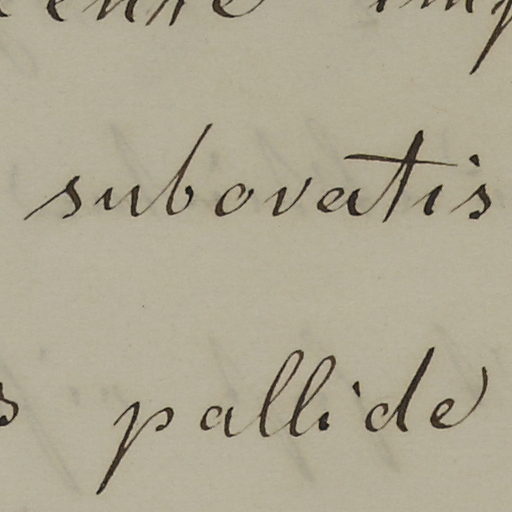 subovatis
pallide